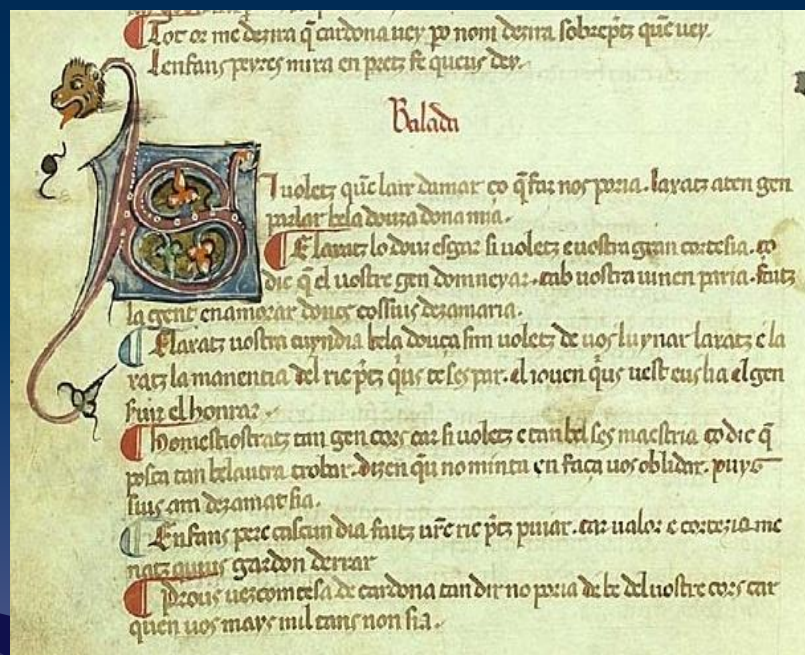 Tot or me dezira q̃ cardona vey po nom dezira sobrep̃tz que vey.
Lenfans peyres mira en pretz fe queus dey.
Balada
Si voletz que lair damar ço q̃ far nos poria. laxatz aten gen
parlar bela douza dona mia.
E laxatz lo douz esgar si voletz e vostra gran cortesia. ço
dic q̃ el vostre gen domneyar. eab vostra vinen paria. faitz
la gent enamorar doncs cossius dezamaria.
E laxatz vostra cuyndia bela douça sim voletz de vos luynar laxatz e la
xatz la manentia del ric p̃tz q̃us te ses par. el joven q̃us vest eus lia el gen
fuir el honrar.
Nom estiostratz tan gen cors car si voletz e tan bel ses maestria ço dic q̃
posca tan bel autra trobar. dizen q̃u no minta en faça vos oblidar. puys
sius am dezamat sia.
Enfans pere cascun dia faitz vr̃e ric p̃tz pujar. car valor e cortezia me
natz quius gardon derrar
Pros vezcomtesa de cardona tan dir no poria de be del vostre cors car
quen vos mays mil tans non sia.